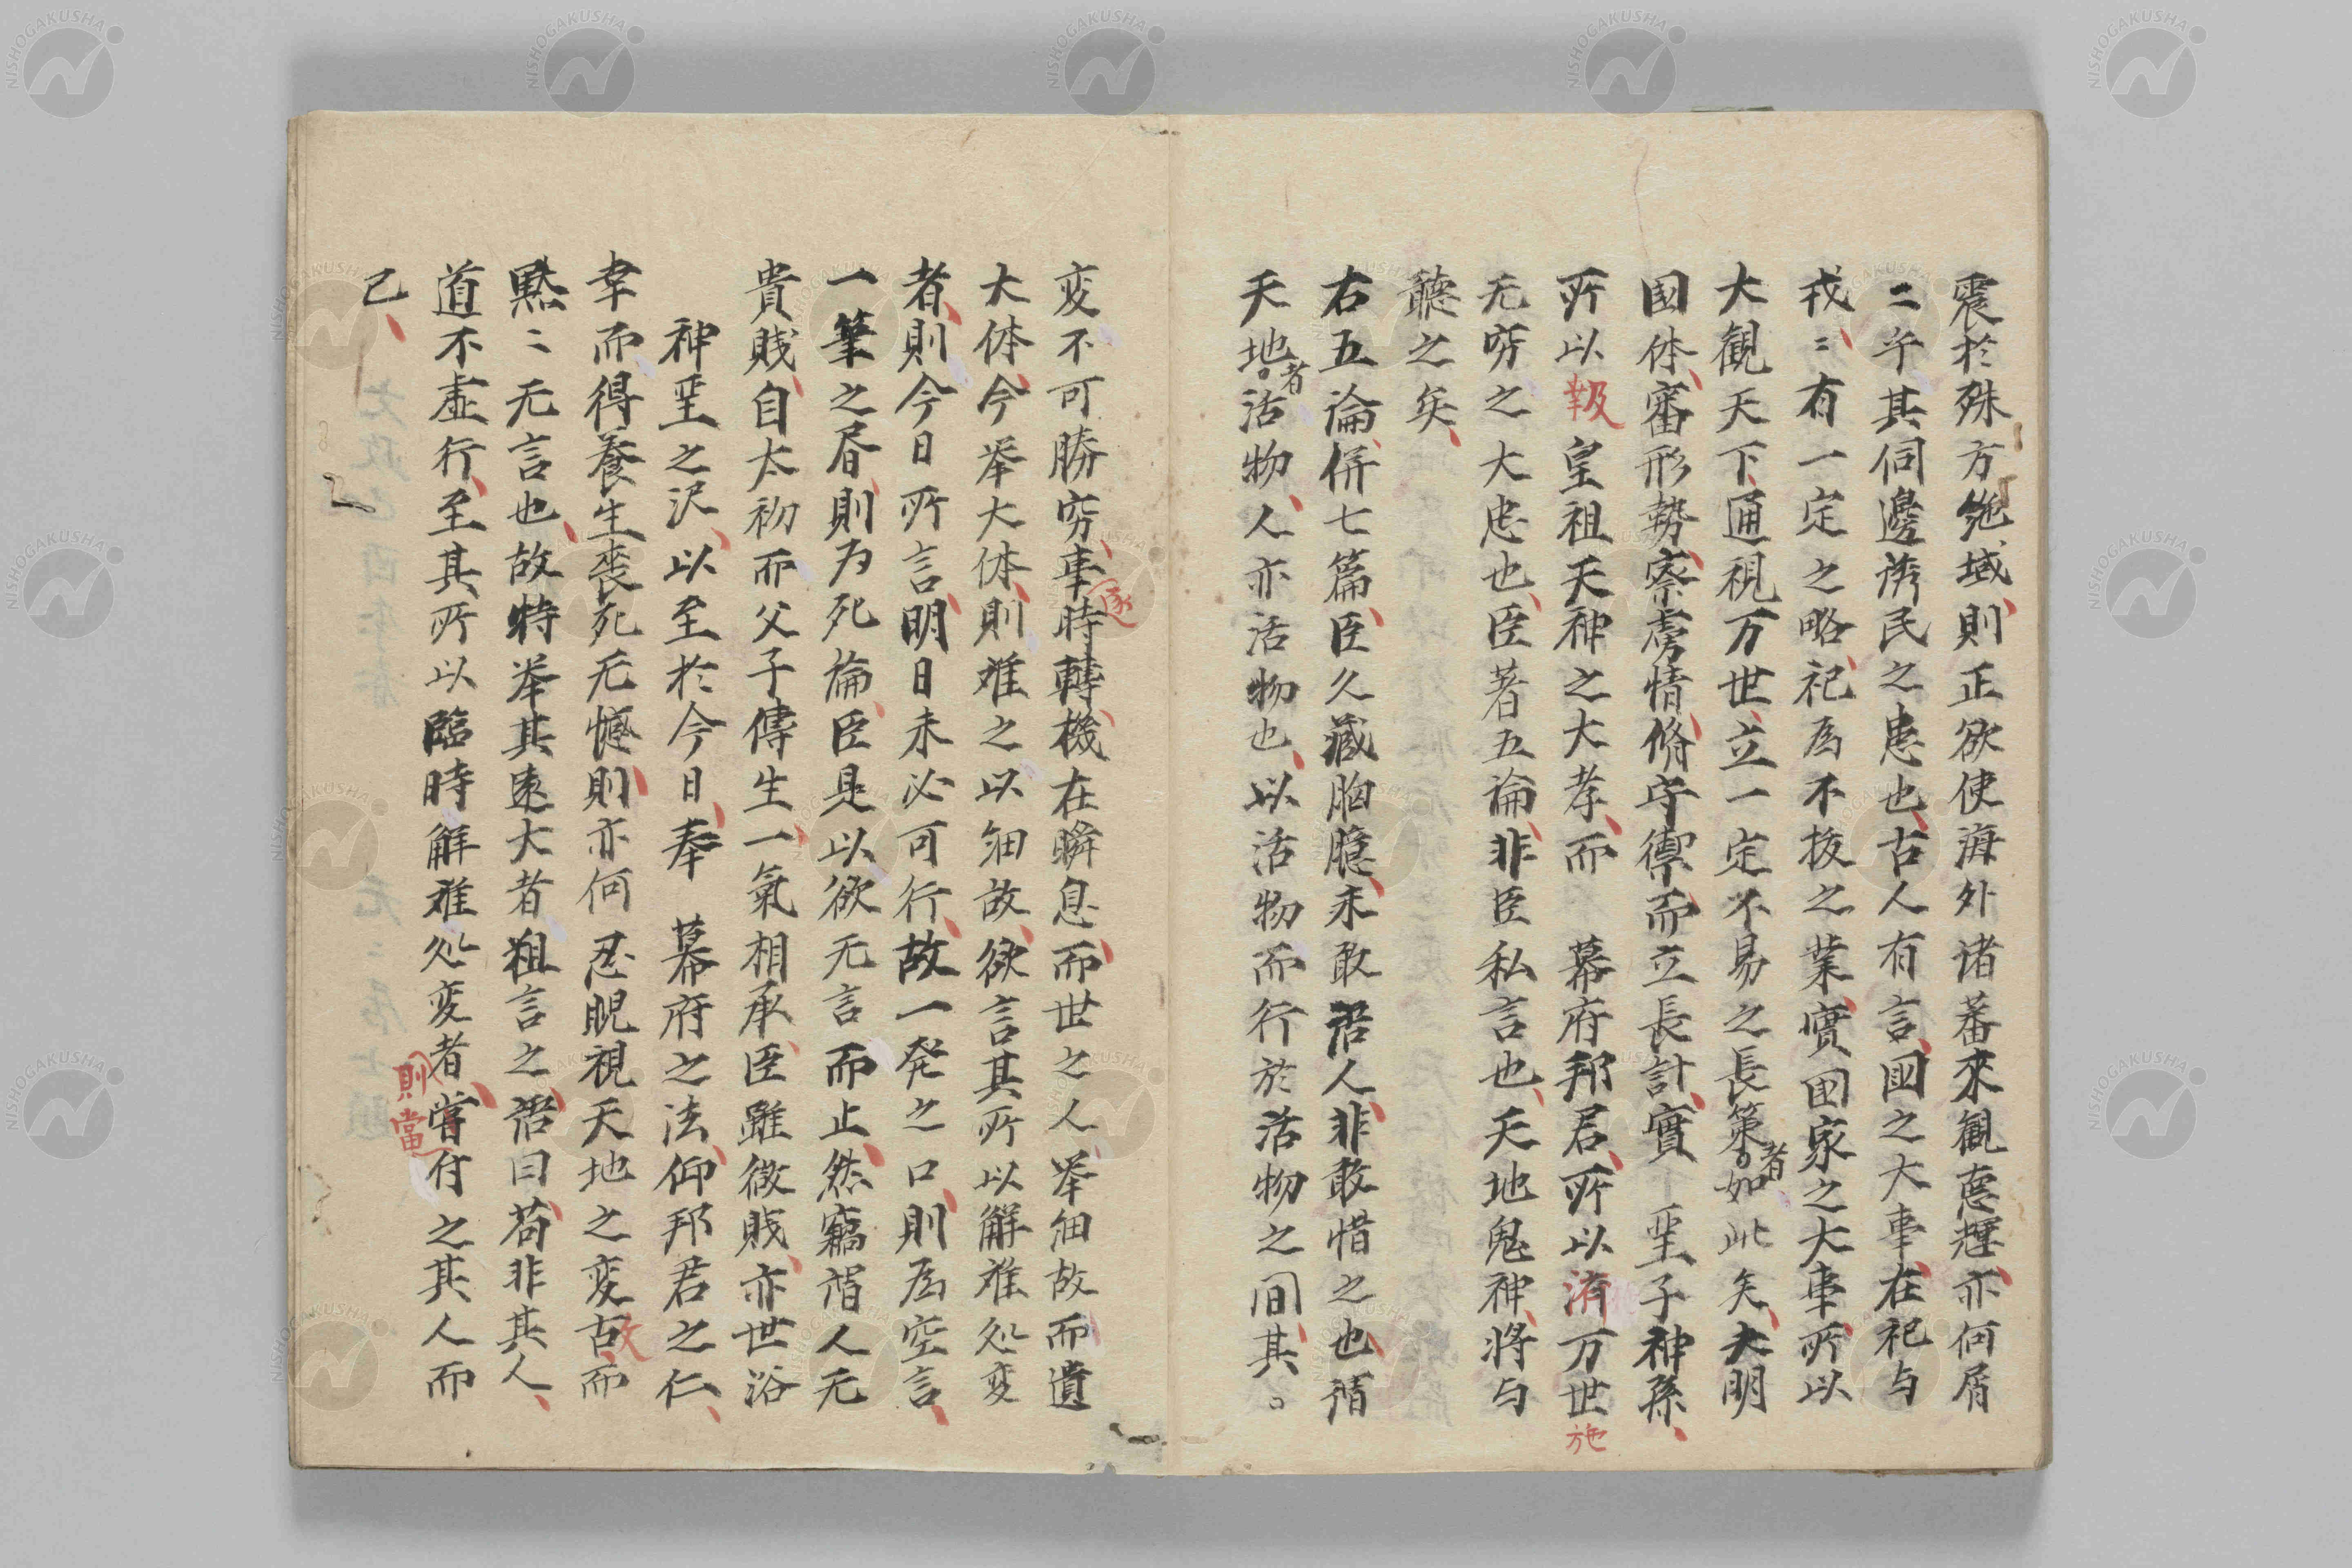 震於殊方絶域則正欲使海外诸蕃來観悳輝亦何屑
〻乎其伺邊誘民之患也古人有言國之大事在祀与
戎〻有一定之略祀為不拔之業實國家之大事所以
大観天下通視万世立一定不易之長策者如此矣夫明
國体審形勢察虜情脩守禦而立長計實 聖子神孫
所以報 皇祖天神之大孝而 幕府邦君所以済万世施
无窮之大忠也臣著五論非臣私言也天地鬼神将与
聽之矣
右五論併七篇臣久藏胸臆未敢語人非敢惜之也猶
天地者活物人亦活物也以活物而行於活物之間其
変不可勝窮事逐時轉機在瞬息而世之人举細故而遺
大体今举大体則难之以細故欲言其所以解难処変
者則今日所言明日未必可行故一発之口則為空言
一筆之書則为死論臣是以欲无言而止然竊謂人无
貴賎自太初而父子傳生一氣相承臣雖微賎亦世浴
神聖之沢以至於今日奉 幕府之法仰邦君之仁
幸而得養生喪死无憾則亦何忍睨視天地之変故而
黙〻无言也故特举其遠大者粗言之語曰苟非其人
道不虛行至其所以臨時解难処変者則當付之其人而
已